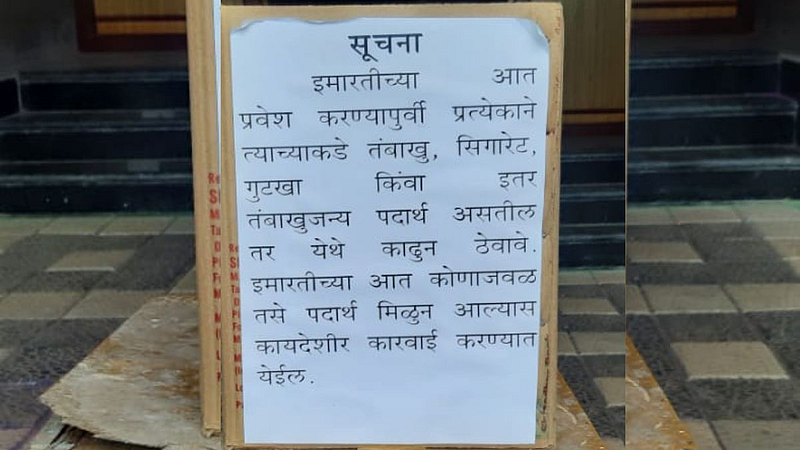 सूचना
इमारतीच्या आत
प्रवेश करण्यापुर्वी प्रत्येकाने
त्याच्याकडे तंबाखु, सिगारेट,
गुटखा किंवा इतर
तंबाखुजन्य पदार्थ असतील
तर येथे काढुन ठेवावे.
इमारतीच्या आत कोणाजवळ
तसे पदार्थ मिळुन आल्यास
कायदेशीर कारवाई करण्यात
येईल.